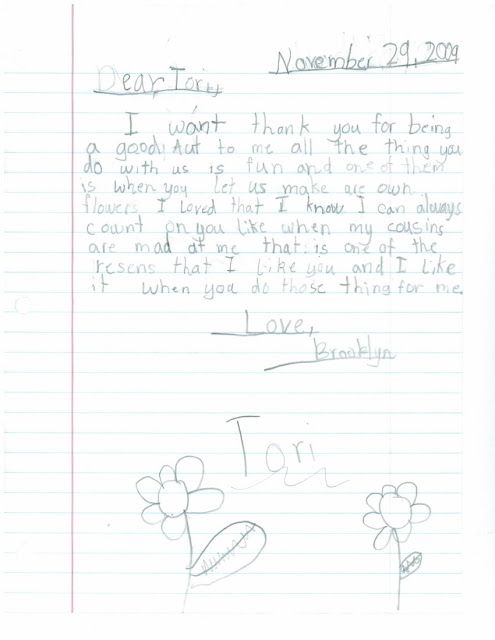 November 29, 2009
Dear Tori,
I want thank you for being
a good Aut to me all the thing you
do with us is fun and one of them
is when you let us make are own
flowers I loved that I know I can always
count on you like when my cousins
are mad at me that is one of the
resens that I like you and I like
it when you do those thing for me.
Love,
Brooklyn
Tori